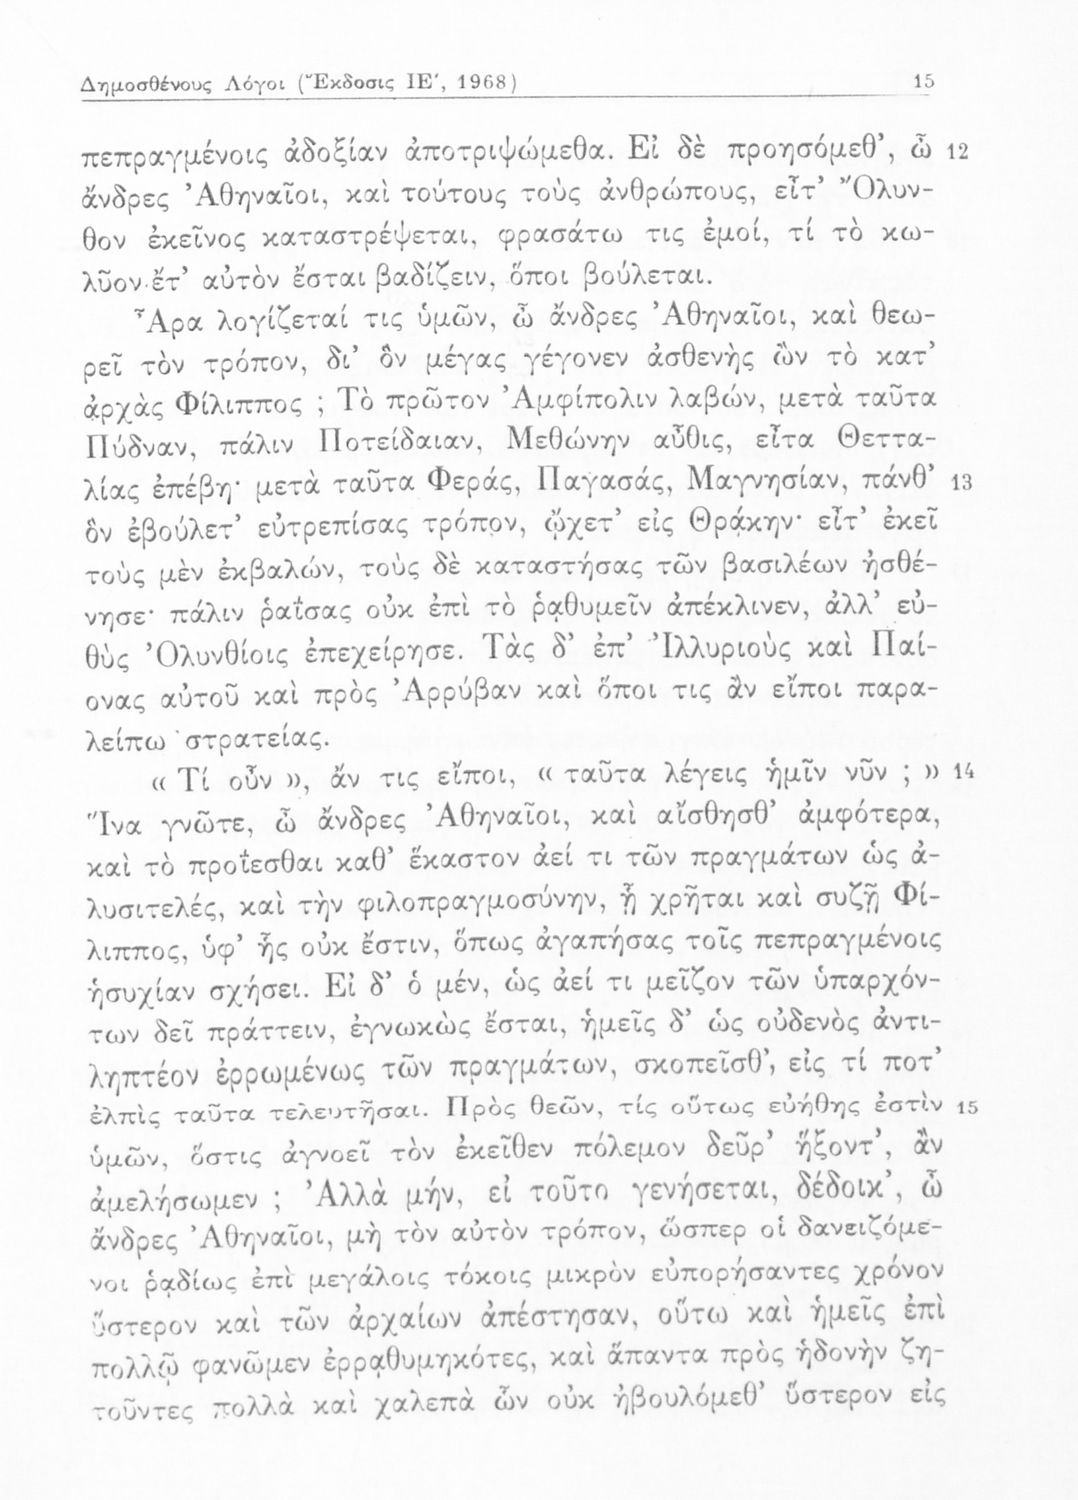 Δημοσθένους Λόγοι (Ἔκδοσις ΙΕ΄, 1968) 15
πεπραγμένοις ἀδοξίαν ἀποτριψώμεθα. Εἰ δὲ προησόμεθ’, ὦ 12
ἄνδρες Ἀθηναῖοι, καὶ τούτους τοὺς ἀνθρώπους, εἶτ’ Ὄλυν-
θον ἐκεῖνος καταστρέψεται, φρασάτω τις ἐμοί, τί τὸ κω-
λῦον ἔτ’ αὐτὸν ἔσται βαδίζειν, ὅποι βούλεται.
Ἆρα λογίζεταί τις ὑμῶν, ὦ ἄνδρες Ἀθηναῖοι, καὶ θεω-
ρεῖ τὸν τρόπον, δι’ ὃν μέγας γέγονεν ἀσθενὴς ὢν τὸ κατ’
ἀρχὰς Φίλιππος ; Τὸ πρῶτον Ἀμφίπολιν λαβών, μετὰ ταῦτα
Πύδναν, πάλιν Ποτείδαιαν, Μεθώνην αὖθις, εἶτα Θεττα-
λίας ἐπέβη· μετὰ ταῦτα Φεράς, Παγασάς, Μαγνησίαν, πάνθ’ 13
ὃν ἐβούλετ’ εὐτρεπίσας τρόπον, ᾤχετ’ εἰς Θρᾴκην· εἶτ’ ἐκεῖ
τοὺς μὲν ἐκβαλών, τοὺς δὲ καταστήσας τῶν βασιλέων ἠσθέ-
νησε· πάλιν ῥαΐσας οὐκ ἐπὶ τὸ ῥᾳθυμεῖν ἀπέκλινεν, ἀλλ’ εὐ-
θὺς Ὀλυνθίοις ἐπεχείρησε. Τὰς δ’ ἐπ’ Ἰλλυριοὺς καὶ Παί-
ονας αὐτοῦ καὶ πρὸς Ἀρρύβαν καὶ ὅποι τις ἂν εἴποι παρα-
λείπω στρατείας.
« Τί οὖν », ἄν τις εἴποι, « ταῦτα λέγεις ἡμῖν νῦν ; » 14
Ἵνα γνῶτε, ὦ ἄνδρες Ἀθηναῖοι, καὶ αἴσθησθ’ ἀμφότερα,
καὶ τὸ προΐεσθαι καθ’ ἕκαστον ἀεί τι τῶν πραγμάτων ὡς ἀ-
λυσιτελές, καὶ τὴν φιλοπραγμοσύνην, ᾗ χρῆται καὶ συζῇ Φί-
λιππος, ὑφ’ ἧς οὐκ ἔστιν, ὅπως ἀγαπήσας τοῖς πεπραγμένοις
ἡσυχίαν σχήσει. Εἰ δ’ ὁ μέν, ὡς ἀεί τι μεῖζον τῶν ὑπαρχόν-
των δεῖ πράττειν, ἐγνωκὼς ἔσται, ἡμεῖς δ’ ὡς οὐδενὸς ἀντι-
ληπτέον ἐρρωμένως τῶν πραγμάτων, σκοπεῖσθ’, εἰς τί ποτ’
ἐλπὶς ταῦτα τελευτῆσαι. Πρὸς θεῶν, τίς οὕτως εὐήθης ἐστὶν 15
ὑμῶν, ὅστις ἀγνοεῖ τὸν ἐκεῖθεν πόλεμον δεῦρ’ ἥξοντ’, ἂν
ἀμελήσωμεν ; Ἀλλὰ μήν, εἰ τοῦτο γενήσεται, δέδοικ’, ὦ
ἄνδρες Ἀθηναῖοι, μὴ τὸν αὐτὸν τρόπον, ὥσπερ οἱ δανειζόμε-
νοι ῥᾳδίως ἐπὶ μεγάλοις τόκοις μικρὸν εὐπορήσαντες χρόνον
ὕστερον καὶ τῶν ἀρχαίων ἀπέστησαν, οὕτω καὶ ἡμεῖς ἐπὶ
πολλῷ φανῶμεν ἐρρᾳθυμηκότες, καὶ ἅπαντα πρὸς ἡδονὴν ζη-
τοῦντες πολλὰ καὶ χαλεπὰ ὧν οὐκ ἠβουλόμεθ’ ὕστερον εἰς